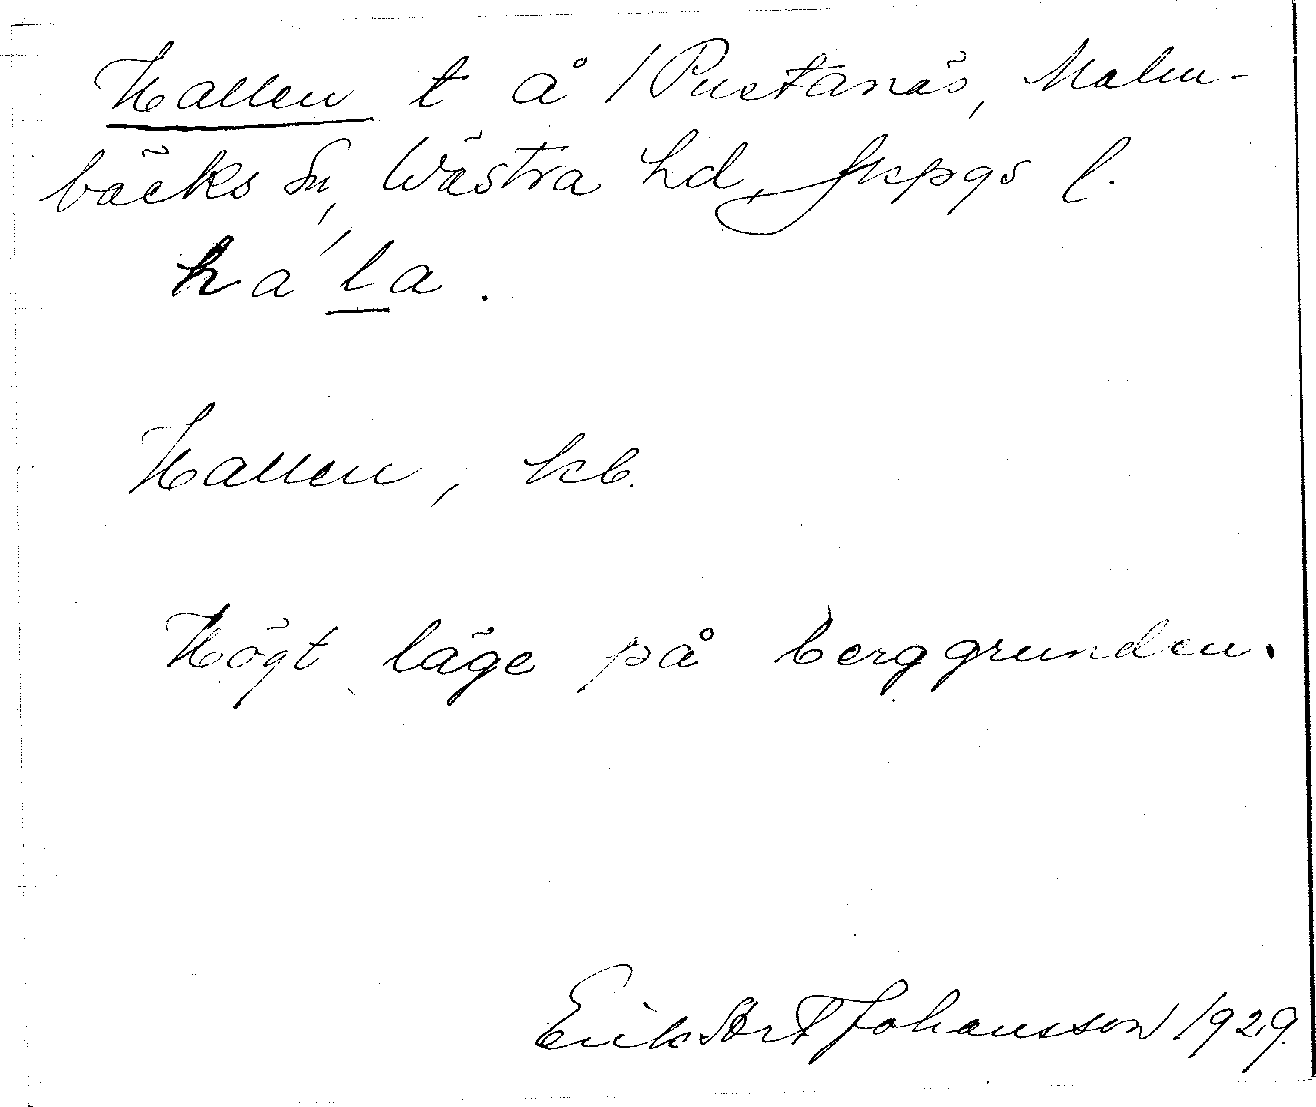 Hallen t å /Pustanäs, Malm-
bäcks sn, Västra hd, Jkpgs l.
ha'la.
Hallen, kb.
Högt läge på berggrunden.
Erik Johansson 1929.